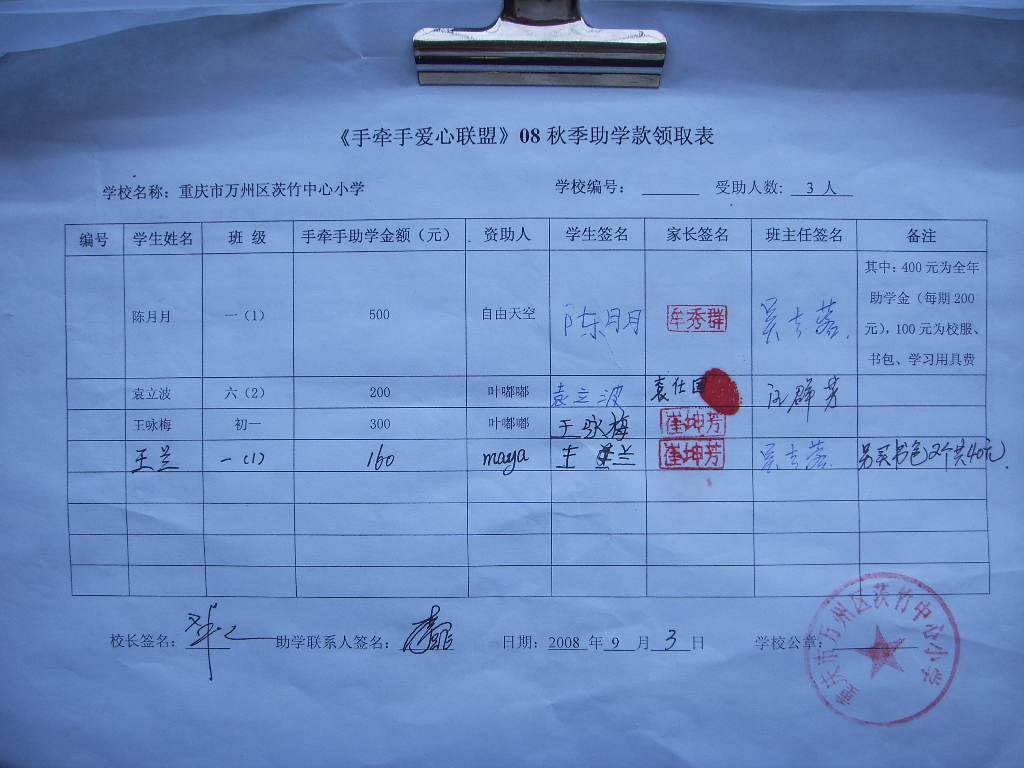 《手牵手爱心联盟》08 秋季助学款领取表
学校名称: 重庆市万州区茨竹中心小学 学校编号: 受助人数: 3 人
编号 学生姓名 班 级 手牵手助学金额（元） 资助人 学生签名 家长签名 班主任签名 备注
陈月月 一（1） 500 自由天空 陈月月 牟秀群 其中: 400 元为全年
助学金（每期 200
元), 100 元为校服、
书包、学习用具费
袁立波 六（2） 200 叶嘟嘟 袁立波 袁仕国 汪群芳
王咏梅 初一 300 叶嘟嘟 王咏梅 崔坤芳
王兰 一（1） 160 maya 王兰 崔坤芳 另买书包2个共40元
校长签名: 助学联系人签名: 日期: 2008 年 9 月 3 日 学校公章:
重庆市万州区茨竹中心小学